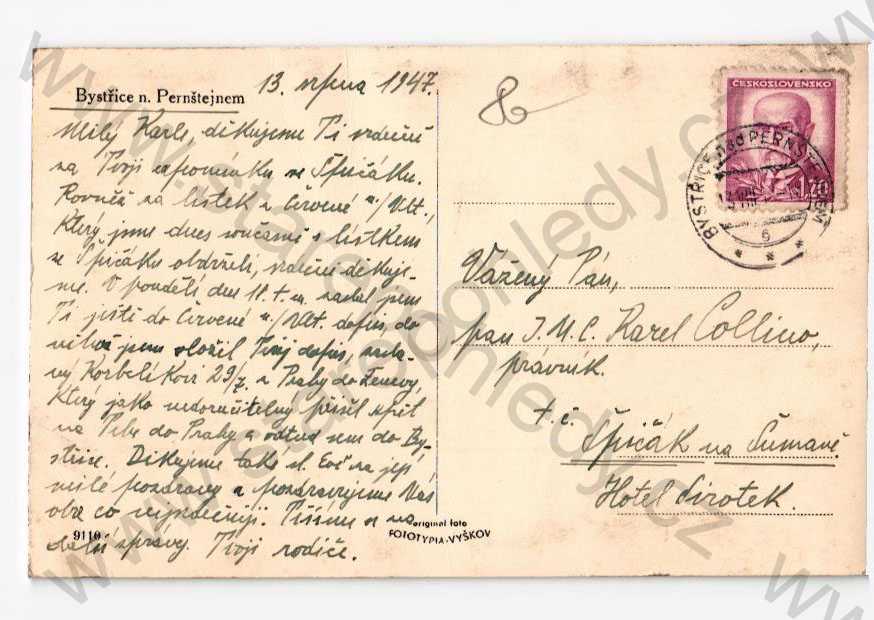 13. srpna 1947.
Bystřice n. Pernštejnem
Milý Karle, děkujeme Ti srdečně
za Tvoji vzpomínku ze Špičáku.
Rovněž za lístek z Červené n/Vlt.,
který jsme dnes současně s lístkem
ze Špičáku obdrželi, srdečně děkuje-
me. V pondělí dne 11. t. m. zaslal jsem
Ti ještě do Červené n/Vlt. dopis, do
něhož jsem vložil Tvůj dopis,
Korbelíkovi 29/7. z Prahy do Ženevy,
který jako nedoručitelný přišel zpět
na Tebe do Prahy a odtud sem do By-
střice. Děkujeme také sl. Evě za její
milé pozdravy a pozdravujeme Vás
oba co nejsrdečněji. Těšíme se na
další zprávy. Tvoji rodiče.
9110
original foto
FOTOTYPIA-VYŠKOV
ČESKOSLOVENSKO
1.20
BYSTŘICE nad PERNŠTEJNEM
6
Vážený Pán,
pan J.U.C. Karel Collino,
právník.
t. č.
Špičák na Šumavě.
Hotel Sirotek.
www.starepohledy.cz